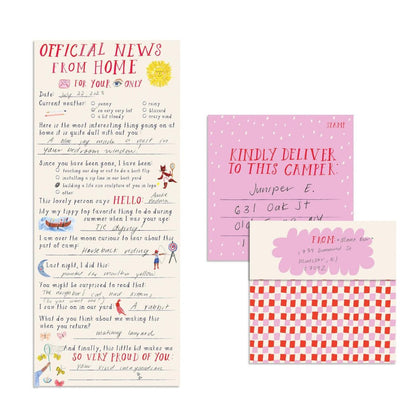 OFFICIAL NEWS
FROM HOME
FOR YOUR ONLY
Date: July 22, 2025
Current weather: sunny rainy
so very very hot blizzard
a bit cloudy crazy wind
Here is the most interesting thing going on at
home it is quite dull with out you:
A blue jay made a nest in
your bedroom window!
Since you have been gone, I have been:
teaching our dog or cat to do a back flip
installing a zip line in our back yard
building a life size sculpture of you in lego
other
This lovely person says HELLO: Aunt
My my tippy top favorite thing to do during
summer when I was your age:
TIE dying!
I am over the moon curious to hear about this
part of camp: Horseback riding
Last night, I did this:
painted the mailbox yellow
You might be surprised to read that:
The neighbor's cat, had kittens,
I saw this on in our yard: A rabbit
What do you think about me making this
when you return? making lanyard
And finally, this little bit makes me
SO VERY PROUD OF YOU:
your vivid imagination
STAMP
KINDLY DELIVER
TO THIS CAMPER:
Juniper E.
631 Oak St
FROM